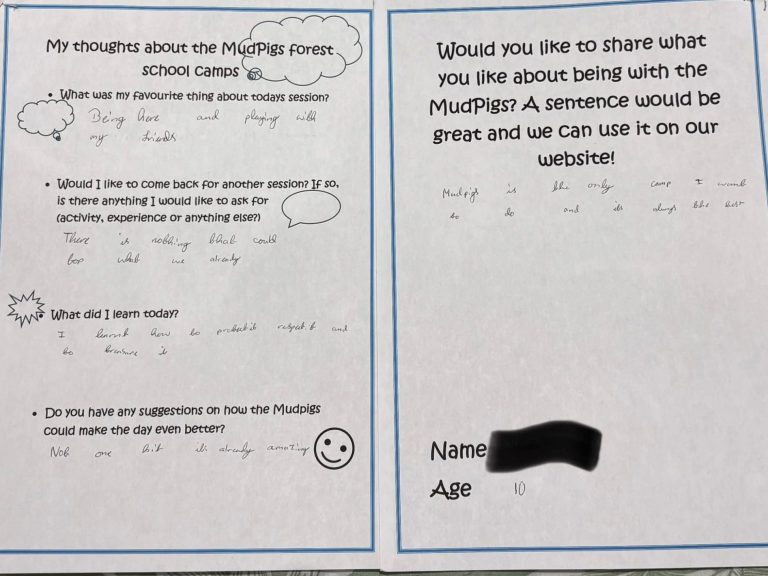 My thoughts about the MudPigs forest
school camps
• What was my favourite thing about todays session?
Being here and playing with
my friends
• Would I like to come back for another session? If so,
is there anything I would like to ask for
(activity, experience or anything else?)
There is nothing that could
top what we already
• What did I learn today?
I learnt how to protect it respect it and
to treasure it
• Do you have any suggestions on how the Mudpigs
could make the day even better?
Not one bit it's already amazing
Would you like to share what
you like about being with the
MudPigs? A sentence would be
great and we can use it on our
website!
Mudpigs is the only camp I want
to do and its always the best
Name
Age 10